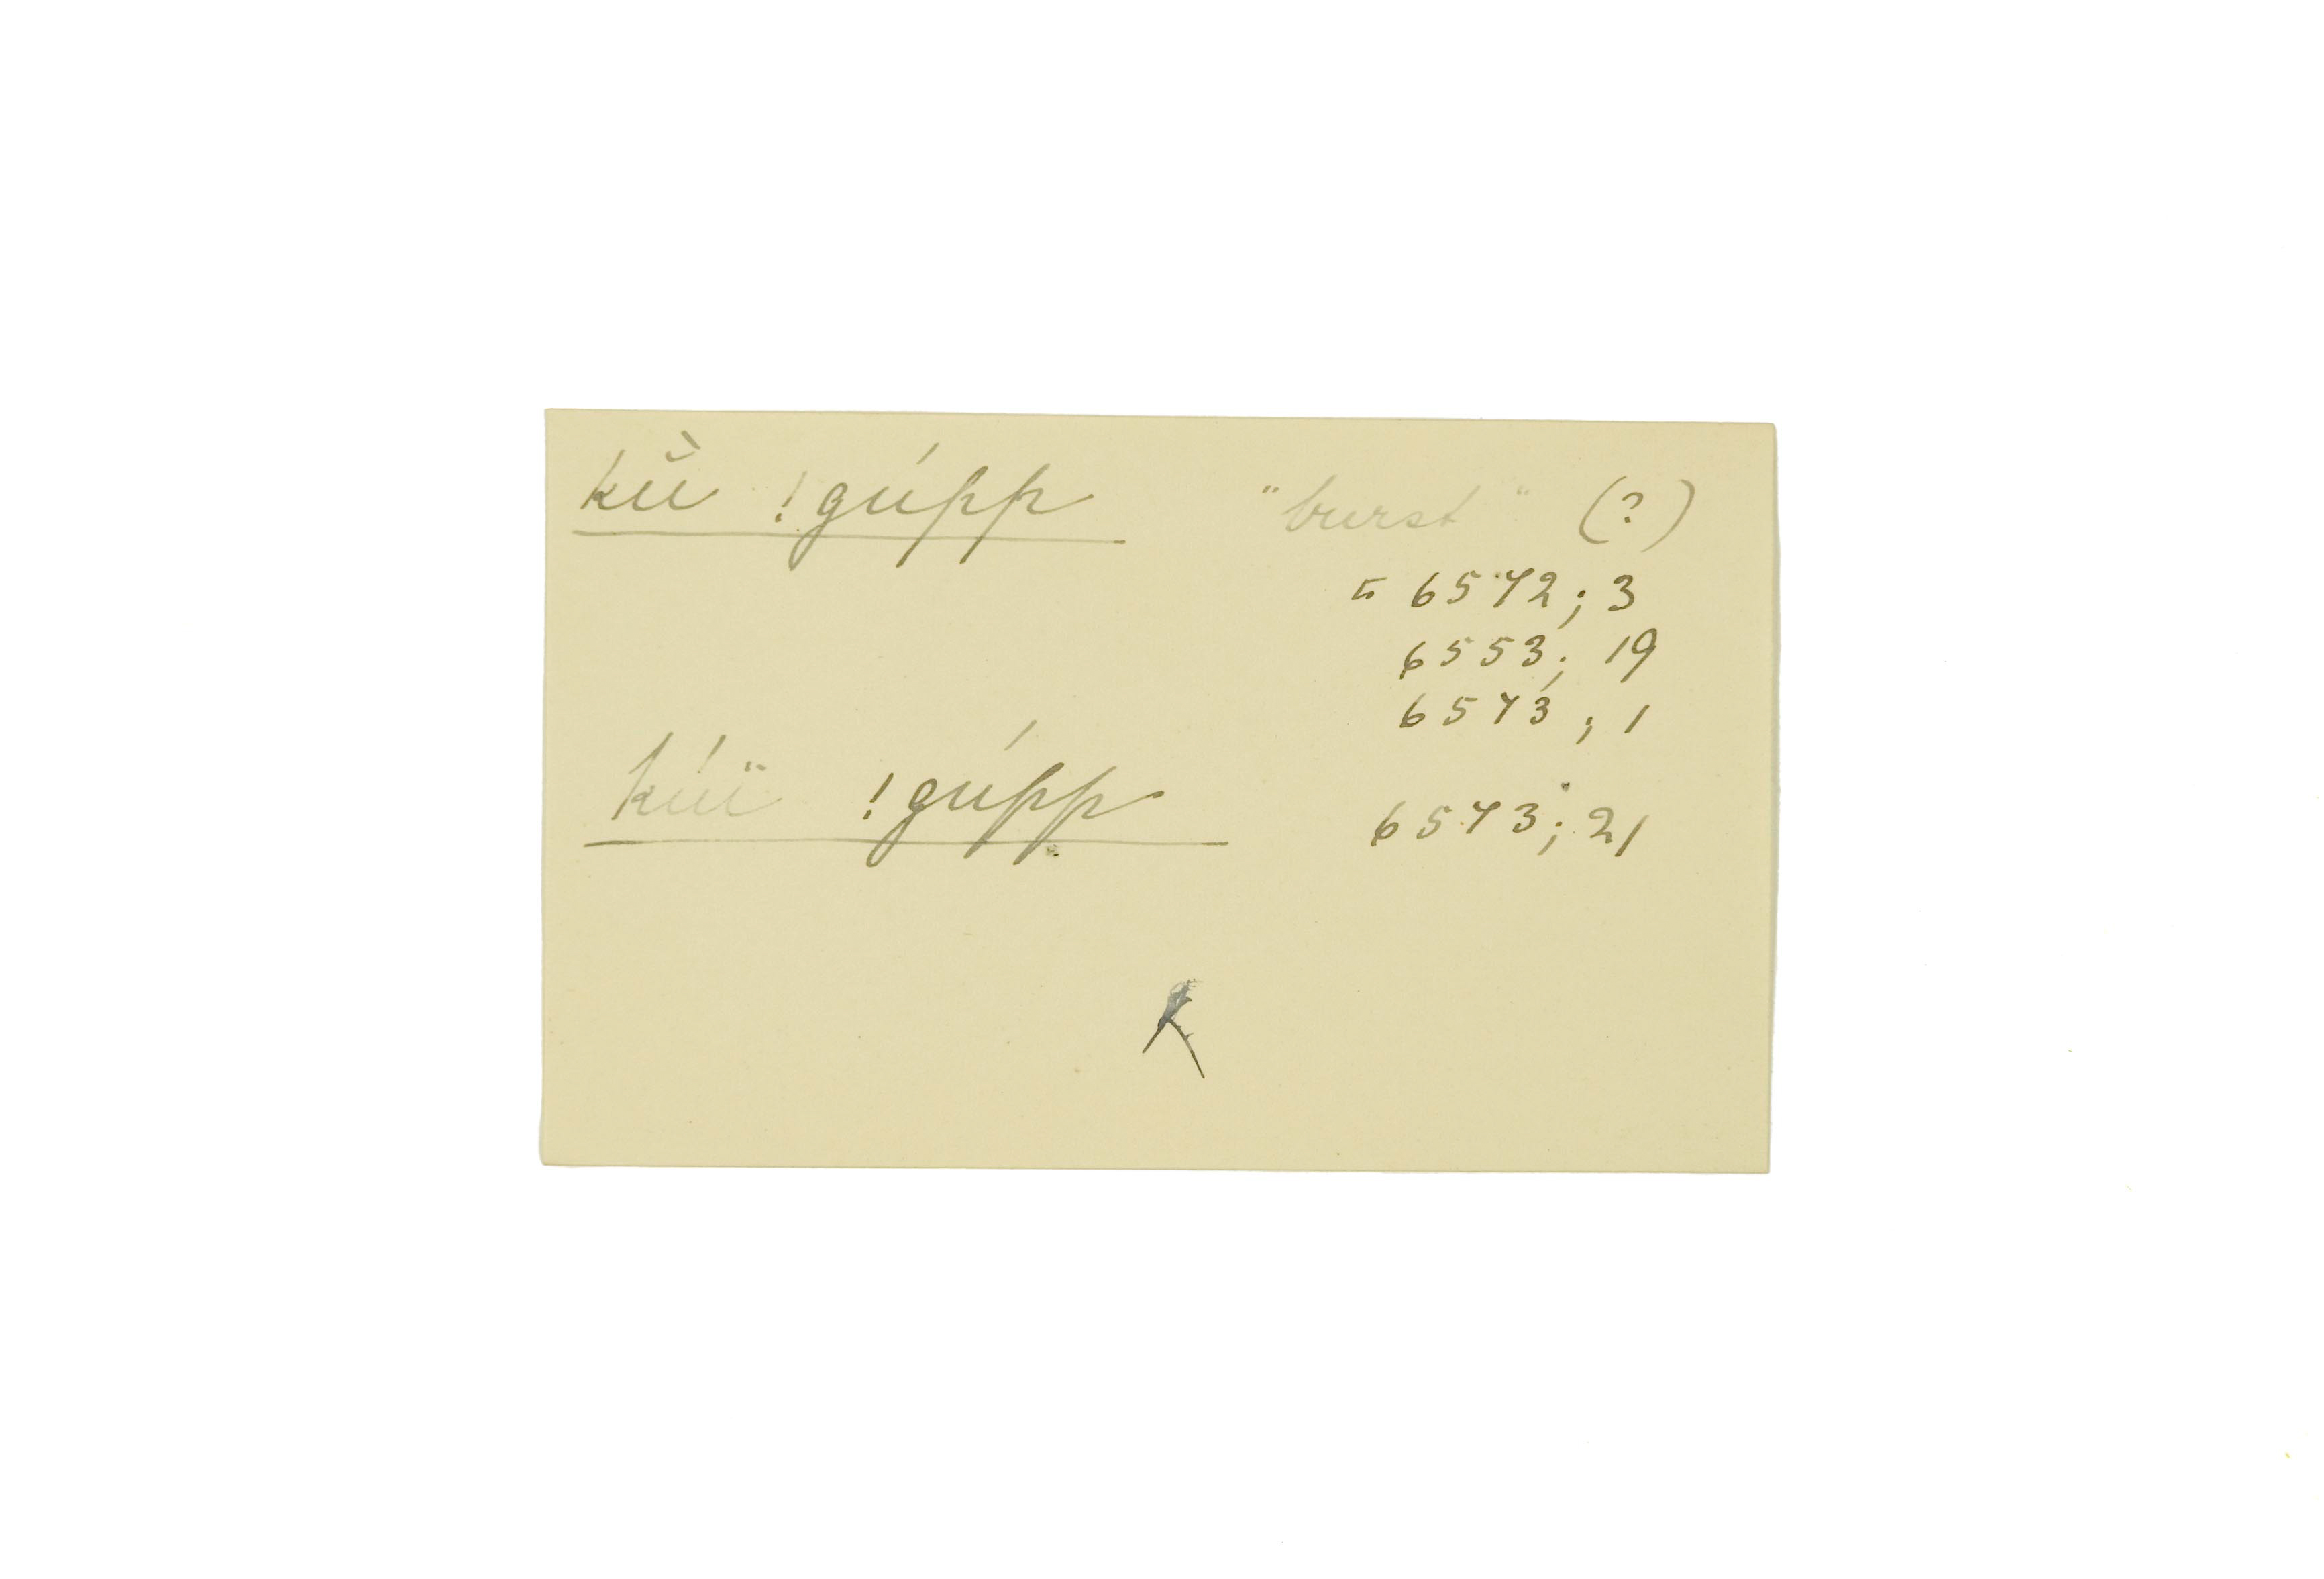 kǜ !gúpp "burst" (?)
5 6572; 3
6553; 19
6573; 1
kúï !gúpp 6573; 21
K